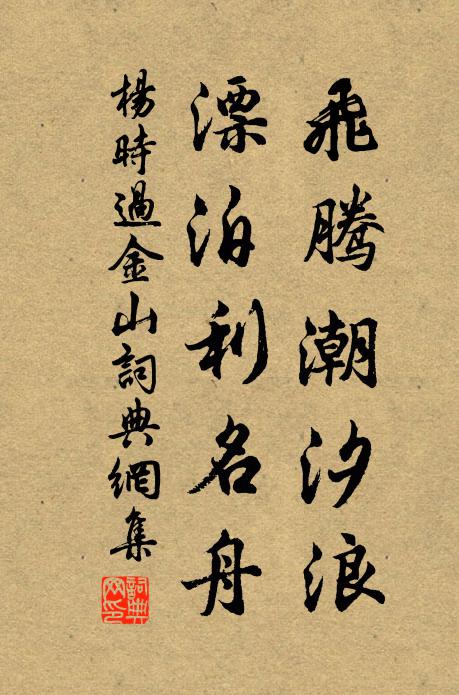 飛騰潮汐浪
漂泊利名舟
楊時過金山詞典網集
詞典網印